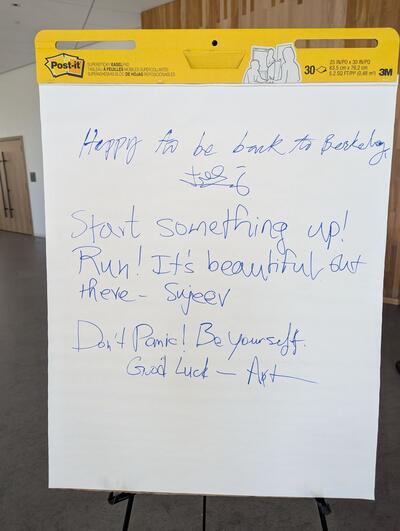 Post-it
SUPERSTICKY EASEL PAD
TABLEAU À FEUILLES MOBILES SUPERCOLLANTES
30
25 IN/PO x 30 IN/PO
63.5 cm x 76.2 cm
5.2 SQ FT/PP (0.48 m²)
3M
Happy to be back to Berkeley,
Start something up!
Run! It's beautiful out
there - Sujeev
Don't Panic! Be Yourself.
Good Luck - Art